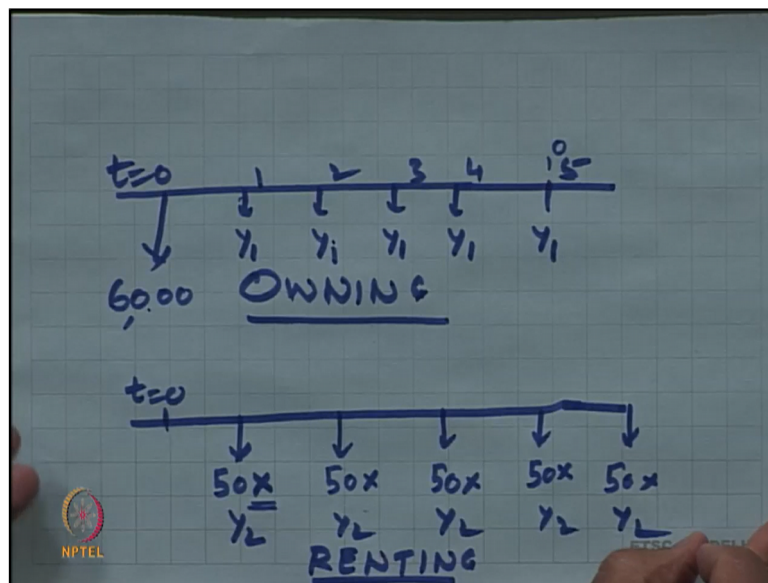 t=0 1 2 3 4 0 5
Y₁ Yᵢ Y₁ Y₁ Y₁
60,00 OWNING
t=0
50x 50x 50x 50x 50x
Y₂ Y₂ Y₂ Y₂ Y₂
NPTEL
RENTING